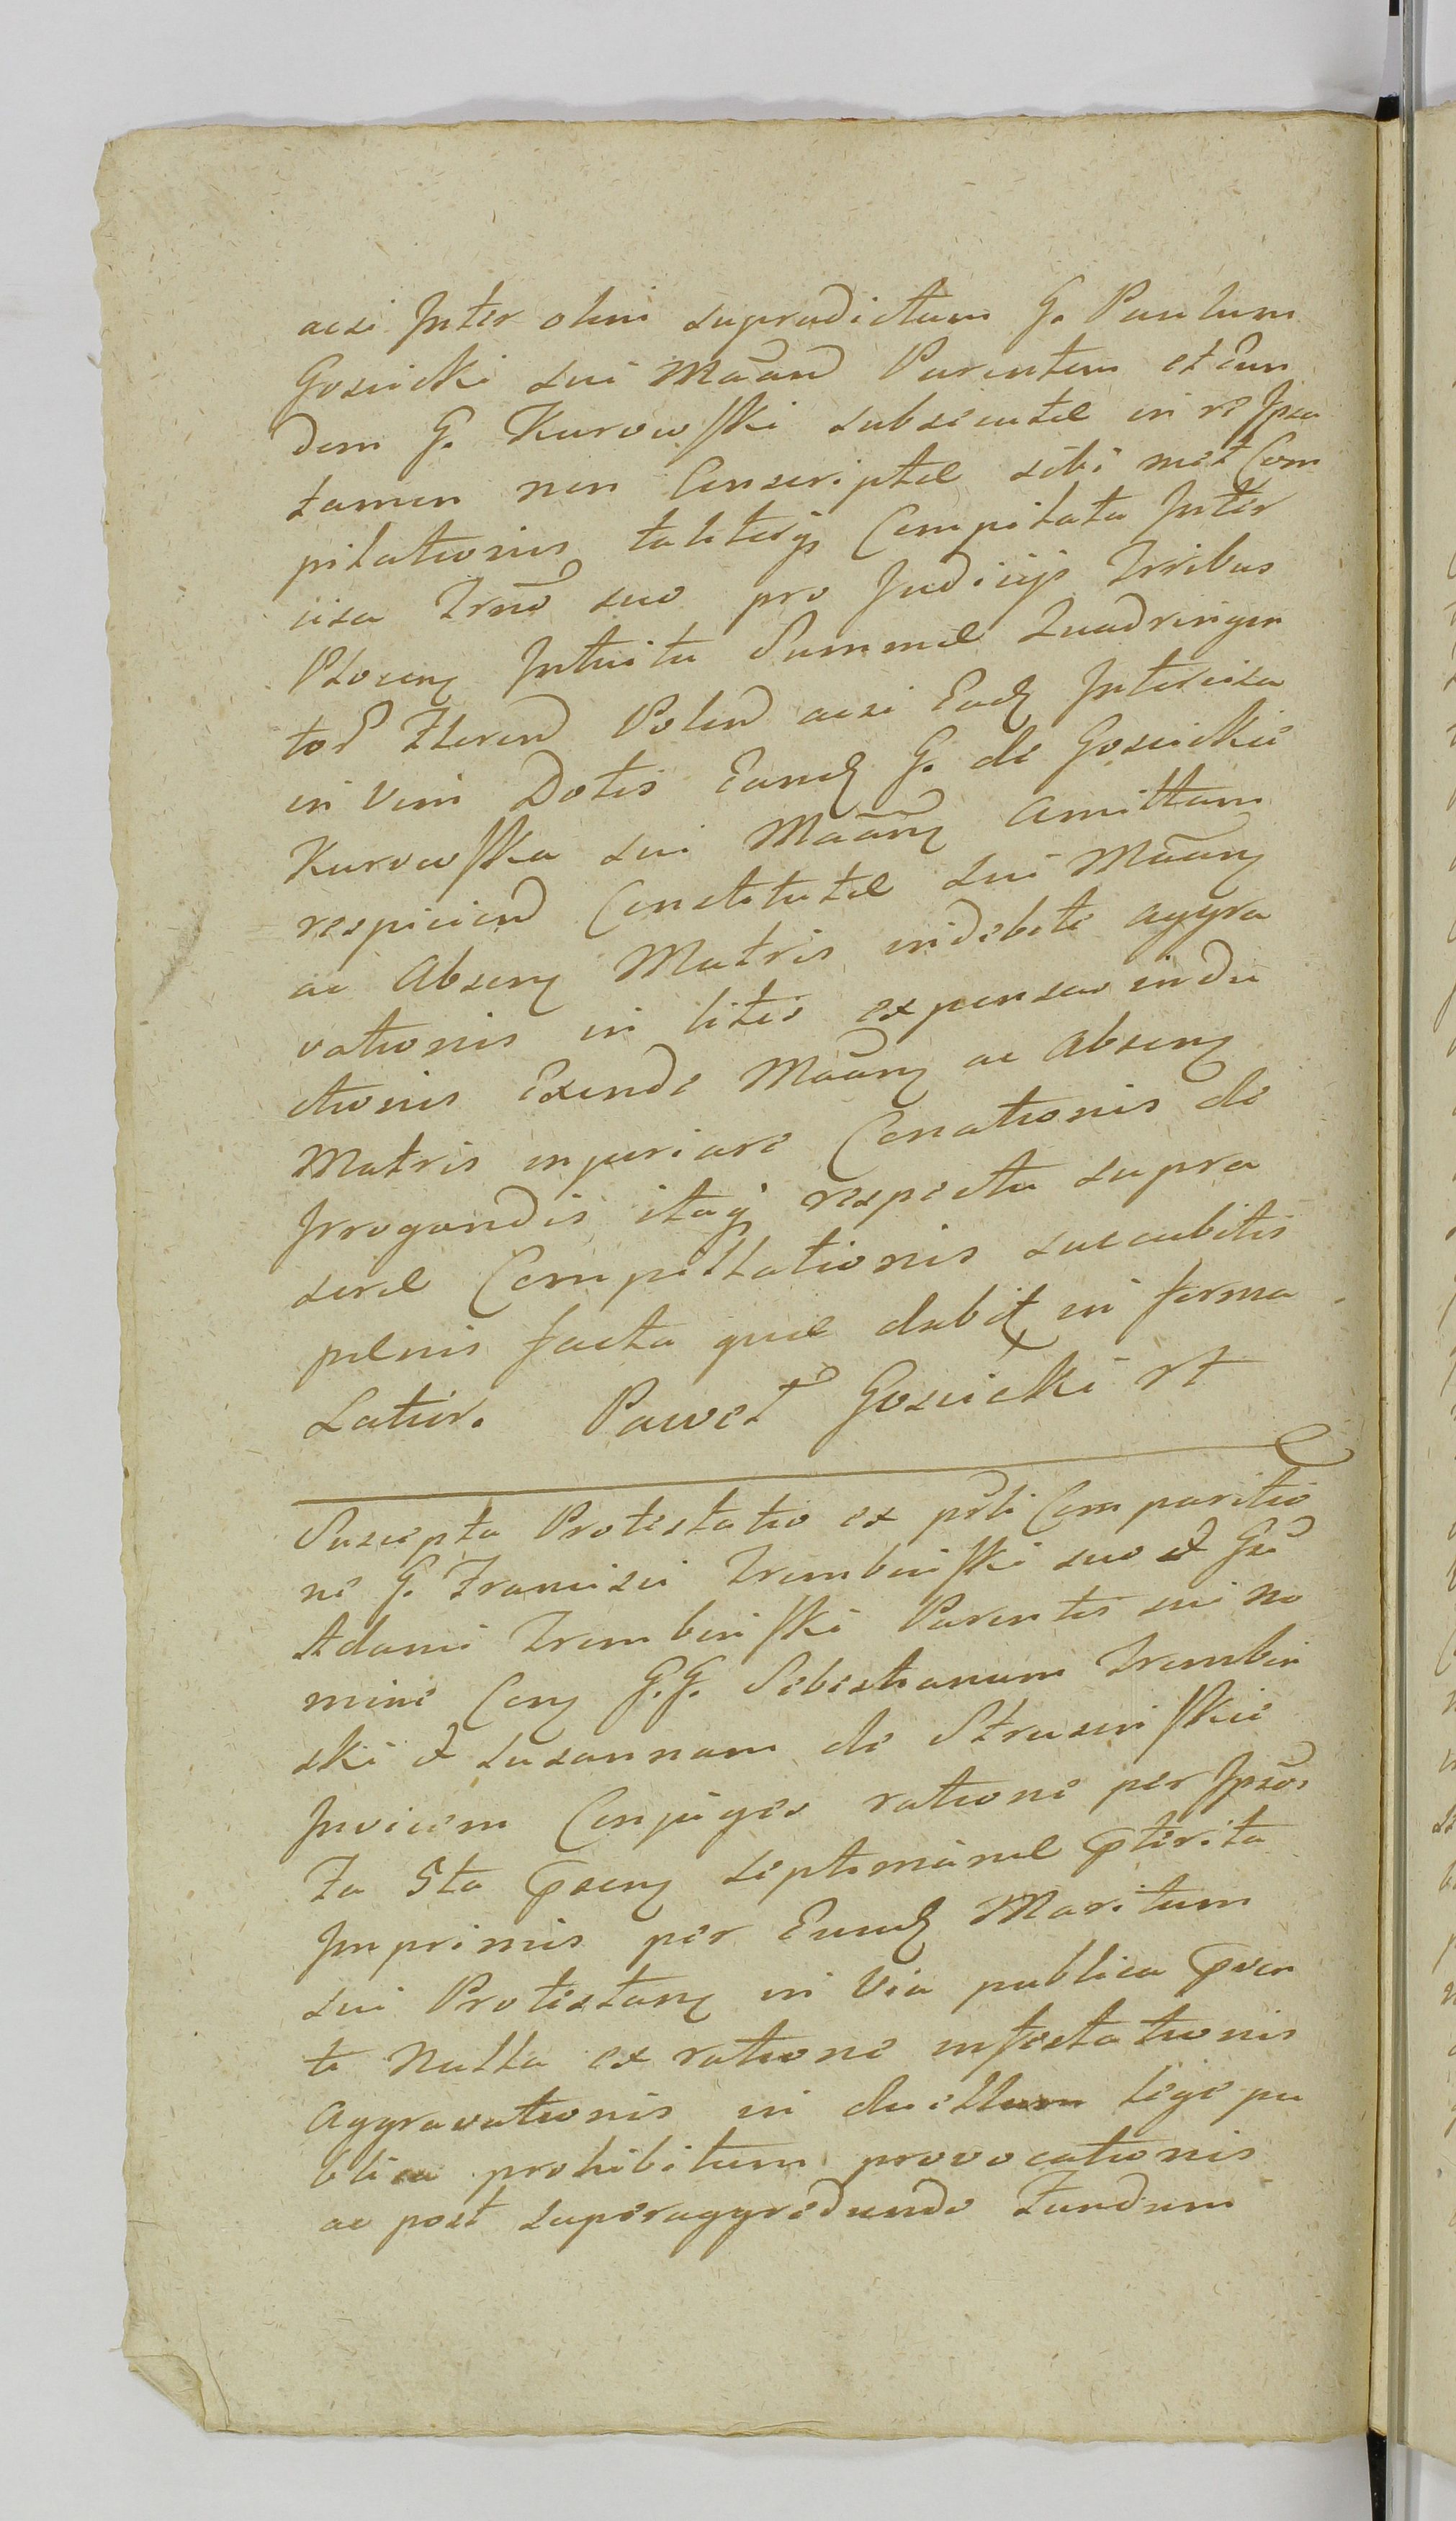 acsi Inter olim supradictum G. Paulum
Goscicki sui Maand Parentem et eun
dem G. Kurowski subsecutae in re Ipsa
tamen non Conscriptae sibi met Com
pilationis taliterq Compilata Inter
cisa Trno suo pro Judicijs Trribus
Plocen Intuitu Summae Quadringen
tor Floren Polon acsi Ead Intercisa
in Vim Dotis Eand G. de Goscickie
Kurowska sui Maan Amittam
respicien Constitutae sui Maan
ac Absen Matris indebite aggra
vationis in litis expensas indu
ctionis Exinde Maan ac Absen
Matris injuriare Conationis de
Irrogandis itaq respectu supra
serae Compillationis succubitis
penis facta quae dabit in forma
Latior. Paweł Goscicki rt
Suscepta Protestatio ex psti Comparitio
ne G. Francisci Trembinski suo et Gsi
Adami Trembinski Parentis sui no
mine Con G.G. Sebestianum Trembin
ski et Susannam de Strusinskie
Invicem Conjuges ratione per Ipsos
Fa 5ta psen septimanae ptерita
Imprimis per Eund Maritum
sui Protestan in Via publica pven
te Nulla ex ratione infestationis
Aggravationis in duellum lege pu
blica prohibitum provocationis
ac post superaggrediundo Fundum